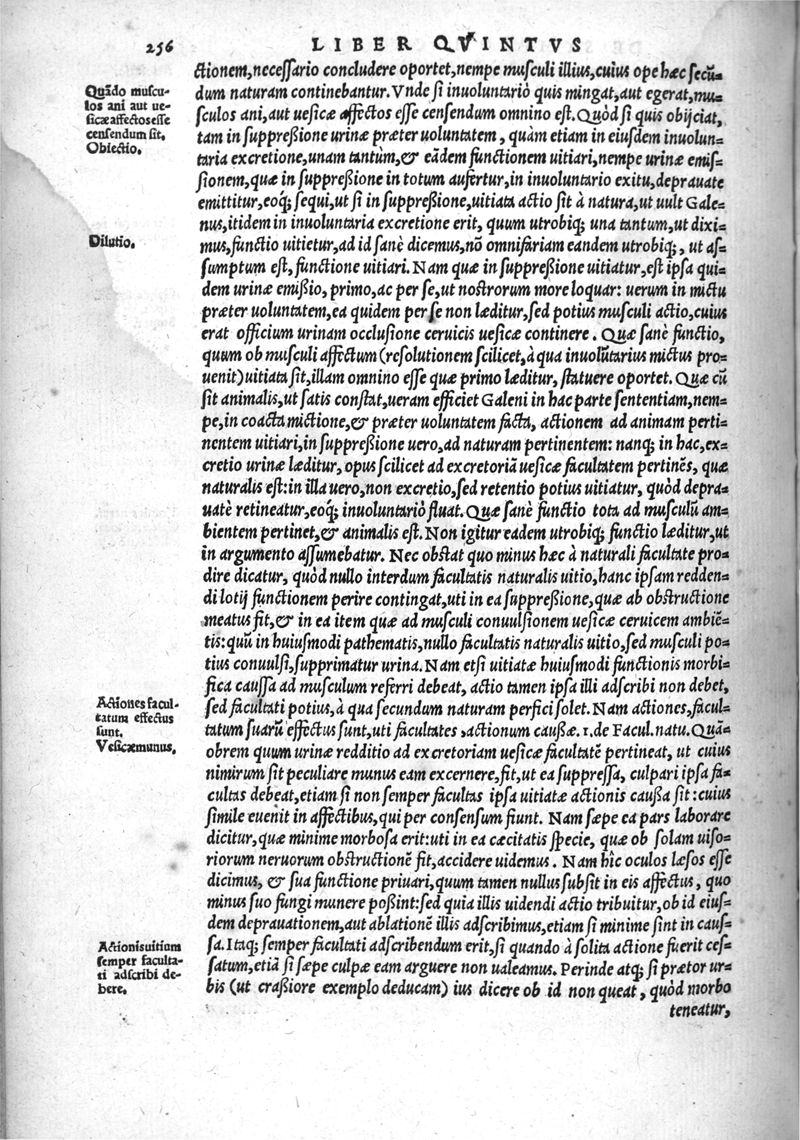 256
LIBER QVINTVS
ctionem, necessario concludere oportet, nempe musculi illius, cuius ope hæc secū-
dum naturam continebantur. Vnde si inuoluntariò quis mingat, aut egerat, mu-
sculos ani, aut uesicæ affectos esse censendum omnino est. Quòd si quis obijciat,
tam in suppreßione urinæ præter uoluntatem, quàm etiam in eiusdem inuolun-
taria excretione, unam tantùm, & eādem functionem uitiari, nempe urinæ emis-
sionem, quæ in suppreßione in totum aufertur, in inuoluntario exitu, deprauate
emittitur, eoq; sequi, ut si in suppreßione, uitiata actio sit à natura, ut uult Gale-
nus, itidem in inuoluntaria excretione erit, quum utrobiq; una tantum, ut dixi-
mus, functio uitietur, ad id sanè dicemus, nō omnifariam eandem utrobiq;, ut as-
sumptum est, functione uitiari. Nam quæ in suppreßione uitiatur, est ipsa qui-
dem urinæ emißio, primo, ac per se, ut nostrorum more loquar: uerum in mictu
præter uoluntatem, ea quidem per se non læditur, sed potius musculi actio, cuius
erat officium urinam occlusione ceruicis uesicæ continere. Quæ sanè functio,
quum ob musculi affectum (resolutionem scilicet, à qua inuolūtarius mictus pro-
uenit) uitiata sit, illam omnino esse quæ primo læditur, statuere oportet. Quæ cū
sit animalis, ut satis constat, ueram efficiet Galeni in hac parte sententiam, nem-
pe, in coacta mictione, & præter uoluntatem facta, actionem ad animam perti-
nentem uitiari, in suppreßione uero, ad naturam pertinentem: nanq; in hac, ex-
cretio urinæ læditur, opus scilicet ad excretoriā uesicæ facultatem pertinēs, quæ
naturalis est: in illa uero, non excretio, sed retentio potius uitiatur, quòd depra-
uatè retineatur, eoq; inuoluntariò fluat. Quæ sanè functio tota ad musculū am-
bientem pertinet, & animalis est. Non igitur eadem utrobiq; functio læditur, ut
in argumento assumebatur. Nec obstat quo minus hæc à naturali facultate pro-
dire dicatur, quòd nullo interdum facultatis naturalis uitio, hanc ipsam redden-
di lotij functionem perire contingat, uti in ea suppreßione, quæ ab obstructione
meatus fit, & in ea item quæ ad musculi conuulsionem uesicæ ceruicem ambiē-
tis: quū in huiusmodi pathematis, nullo facultatis naturalis uitio, sed musculi po-
tius conuulsi, supprimatur urina. Nam etsi uitiatæ huiusmodi functionis morbi-
fica caussa ad musculum referri debeat, actio tamen ipsa illi adscribi non debet,
sed facultati potius, à qua secundum naturam perfici solet. Nam actiones, facul-
tatum suarū effectus sunt, uti facultates, actionum caußæ. 1. de Facul. natu. Quā-
obrem quum urinæ redditio ad excretoriam uesicæ facultatē pertineat, ut cuius
nimirum sit peculiare munus eam excernere, fit, ut ea suppressa, culpari ipsa fa-
cultas debeat, etiam si non semper facultas ipsa uitiatæ actionis caußa sit: cuius
simile euenit in affectibus, qui per consensum fiunt. Nam sæpe ea pars laborare
dicitur, quæ minime morbosa erit: uti in ea cæcitatis specie, quæ ob solam uiso-
riorum neruorum obstructionē fit, accidere uidemus. Nam hîc oculos læsos esse
dicimus, & sua functione priuari, quum tamen nullus subsit in eis affectus, quo
minus suo fungi munere poßint: sed quia illis uidendi actio tribuitur, ob id eius-
dem deprauationem, aut ablationē illis adscribimus, etiam si minime sint in caus-
sa. Itaq; semper facultati adscribendum erit, si quando à solita actione fuerit ces-
satum, etiā si sæpe culpæ eam arguere non ualeamus. Perinde atq; si prætor ur-
bis (ut craßiore exemplo deducam) ius dicere ob id non queat, quòd morbo
teneatur,
Quādo muscu-
los ani aut ue-
sicæ affectos esse
censendum sit.
Obiectio.
Dilutio.
Actiones facul-
tatum effectus
sunt.
Vesicæ munus.
Actionis uitium
semper faculta-
ti adscribi de-
bere.